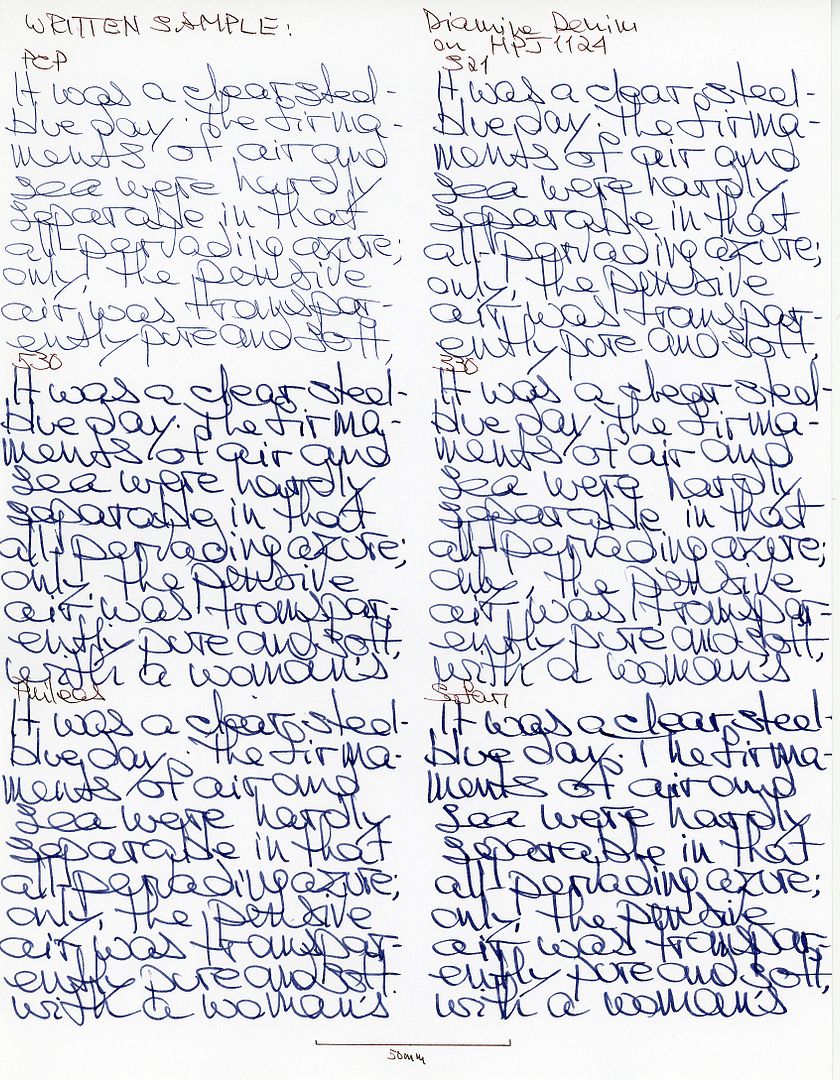 WRITTEN SAMPLE:
Diamine Denim
on HPJ1124
PCP
It was a clear steel-
blue day. The firma-
ments of air and
sea were hardly
separable in that
all-pervading azure;
only, the pensive
air was transpar-
ently pure and soft,
S21
It was a clear steel-
blue day. The firma-
ments of air and
sea were hardly
separable in that
all-pervading azure;
only, the pensive
air was transpar-
ently pure and soft,
530
It was a clear steel-
blue day. The firma-
ments of air and
sea were hardly
separable in that
all-pervading azure;
only, the pensive
air was transpar-
ently pure and soft,
with a woman's
330
It was a clear steel-
blue day. The firma-
ments of air and
sea were hardly
separable in that
all-pervading azure;
only, the pensive
air was transpar-
ently pure and soft,
with a woman's
It was a clear steel-
blue day. The firma-
ments of air and
sea were hardly
separable in that
all-pervading azure;
only, the pensive
air was transpar-
ently pure and soft
with a woman's
Safari
It was a clear steel-
blue day. The firma-
ments of air and
sea were hardly
separable in that
all-pervading azure;
only, the pensive
air was transpar-
ently pure and soft,
with a woman's
50mm